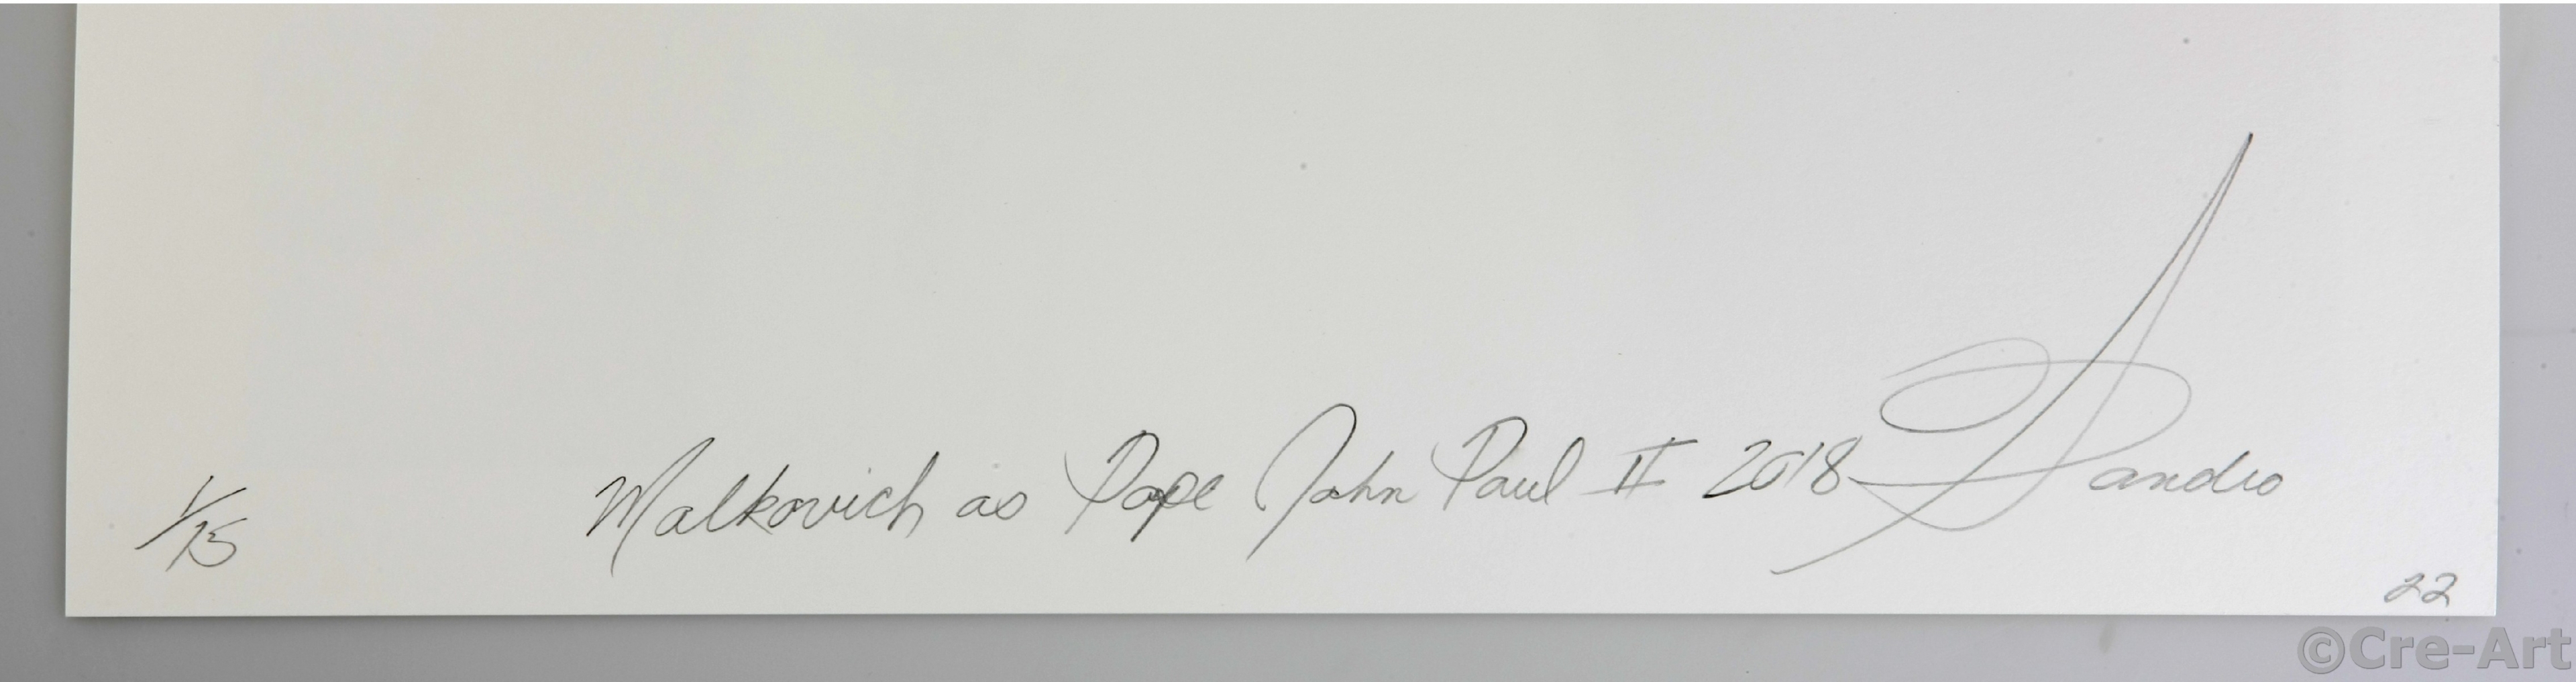 1/15
Malkovich as Pope John Paul II 2018 Sandro
22
©Cre-Art